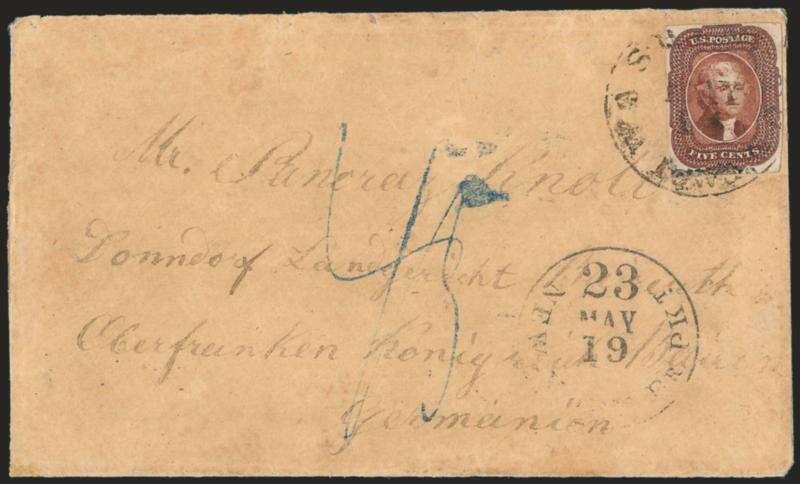 U.S. POSTAGE
FIVE CENTS
Mr. Pancraz Knoll
Donndorf Landgericht
Oberfranken Königreich
Germanien
45
23
MAY
19
NEW PKT